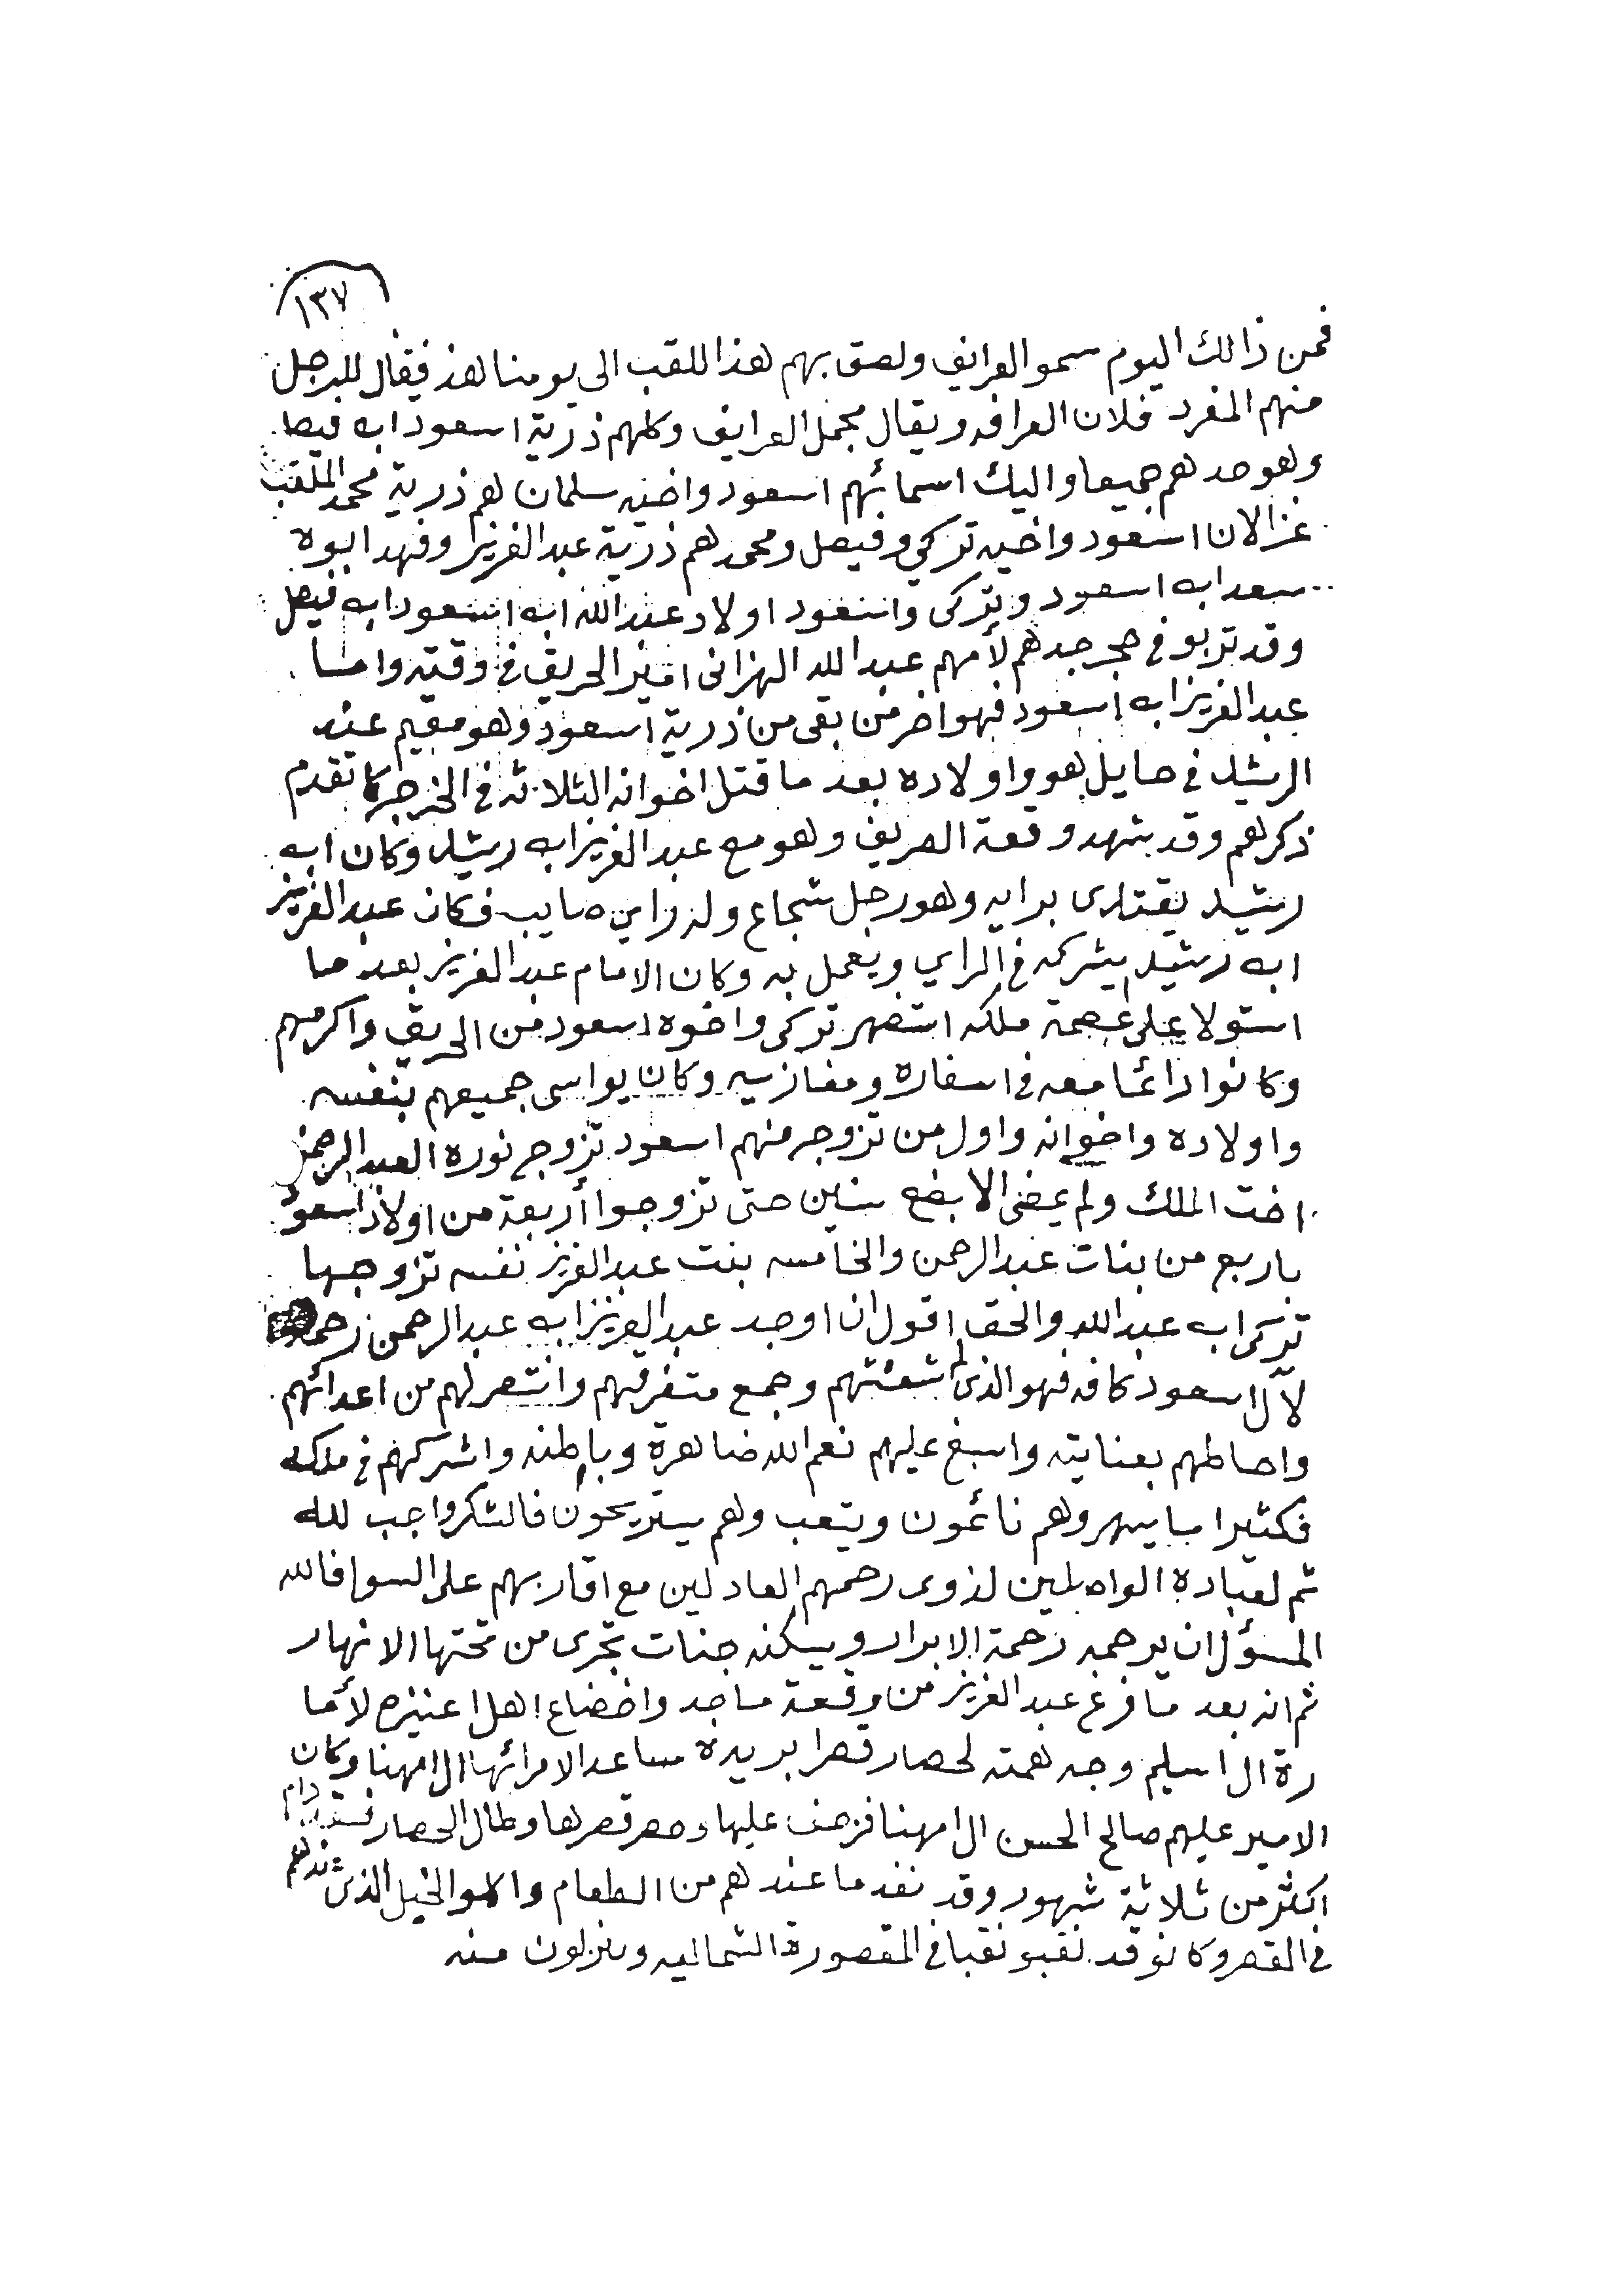 ١٣٧
فمن ذالك اليوم سمو العرايف ولصق بهم هذا اللقب الى يومنا هذ فيقال للرجل
منهم المفرد فلان العرافه ويقال مجمل العرايف وكلهم ذرية اسعود ابه فيصل
وهو جدهم جميعا واليك اسمائهم اسعود واخيه سلمان هم ذرية محمد الملقب
غزالان اسعود واخيه تركي وفيصل ومحمد هم ذرية عبد العزيز وفهد ابوه
سعد ابه اسعود وتركى واسعود اولاد عبد الله ابه اسعود ابه فيصل
وقد تربو في حجر جدهم لأمهم عبد الله الهزانى امير الحريق في وقته واما
عبد العزيز ابه اسعود فهو اخر من بقى من ذرية اسعود وهو مقيم عند
الرشيد في حايل هو واولاده بعد ما قتل اخوانه الثلاثه في الخرج كما تقدم
ذكرهم وقد شهد وقعة الصريف وهو مع عبد العزيز ابه رشيد وكان ابه
رشيد يقتدى برايه وهو رجل شجاع وله راي صايب فكان عبد العزيز
ابه رشيد يشركه في الراي ويعمل به وكان الامام عبد العزيز بعد ما
استولا على عصمة ملكه استضهر تركى واخوه اسعود من الحريق واكرمهم
وكانوا دائما معه في اسفاره ومغازيه وكان يواسى جميعهم بنفسه
واولاده واخوانه واول من تزوج منهم اسعود تزوج نوره العبد الرحمن
اخت الملك ولم يمضى الا بضع سنين حتى تزوجوا أربعة من اولاد اسعود
باربع من بنات عبد الرحمن والخامسه بنت عبد العزيز نفسه تزوجها
تركى ابه عبد الله والحق اقول ان اوجد عبد العزيز ابه عبد الرحمن رحمة
لآل اسعود كافه فهو الذى لم شعثهم وجمع متفرقهم وانتصر لهم من اعدائهم
واحاطهم بعنايته واسبغ عليهم نعم الله ضاهرة وباطنه واشركهم في ملكه
فكثيرا ما يسهر وهم نائمون ويتعب وهم يستريحون فالشكر واجب لله
ثم لعباده الواصلين لذوى رحمهم العادلين مع اقاربهم على السوا فالله
المسؤل ان يرحمه رحمة الابرار ويسكنه جنات تجرى من تحتها الانهار
ثم انه بعد ما فرغ عبد العزيز من وقعة ماجد واخضاع اهل اعنيزه لأما
رة ال اسليم وجه همته لحصار قصر ابريدة مساعد الامرائها ال امهنا وكان
الامير عليهم صالح الحسن ال امهنا فزحف عليها وحصر قصرها وطال الحصار دام
اكثر من ثلاثة شهور وقد نفد ما عندهم من الطعام والخيل الذى عندهم
في القصر وكانو قد نقبو نقبا في المقصورة الشماليه وينزلون منه